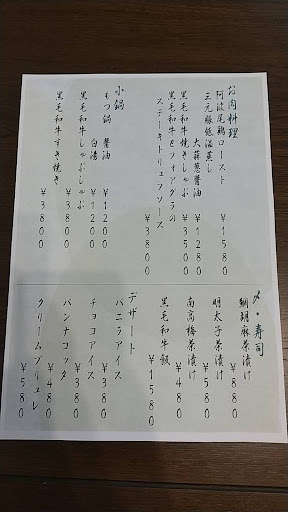 お肉料理
阿波尾鶏ロースト ¥1580
三元豚低温蒸し
大蒜葱醬油 ¥1280
黒毛和牛焼きしゃぶ ¥3500
黒毛和牛とフォアグラの
ステーキトリュフソース ¥3800
小鍋
もつ鍋 醬油 ¥1200
白湯 ¥1200
黒毛和牛しゃぶしゃぶ ¥3800
黒毛和牛すき焼き ¥3800
〆・寿司
鯛胡麻茶漬け ¥880
明太子茶漬け ¥580
南高梅茶漬け ¥480
黒毛和牛飯 ¥1580
デザート
バニラアイス ¥380
チョコアイス ¥380
パンナコッタ ¥480
クリームブリュレ ¥580